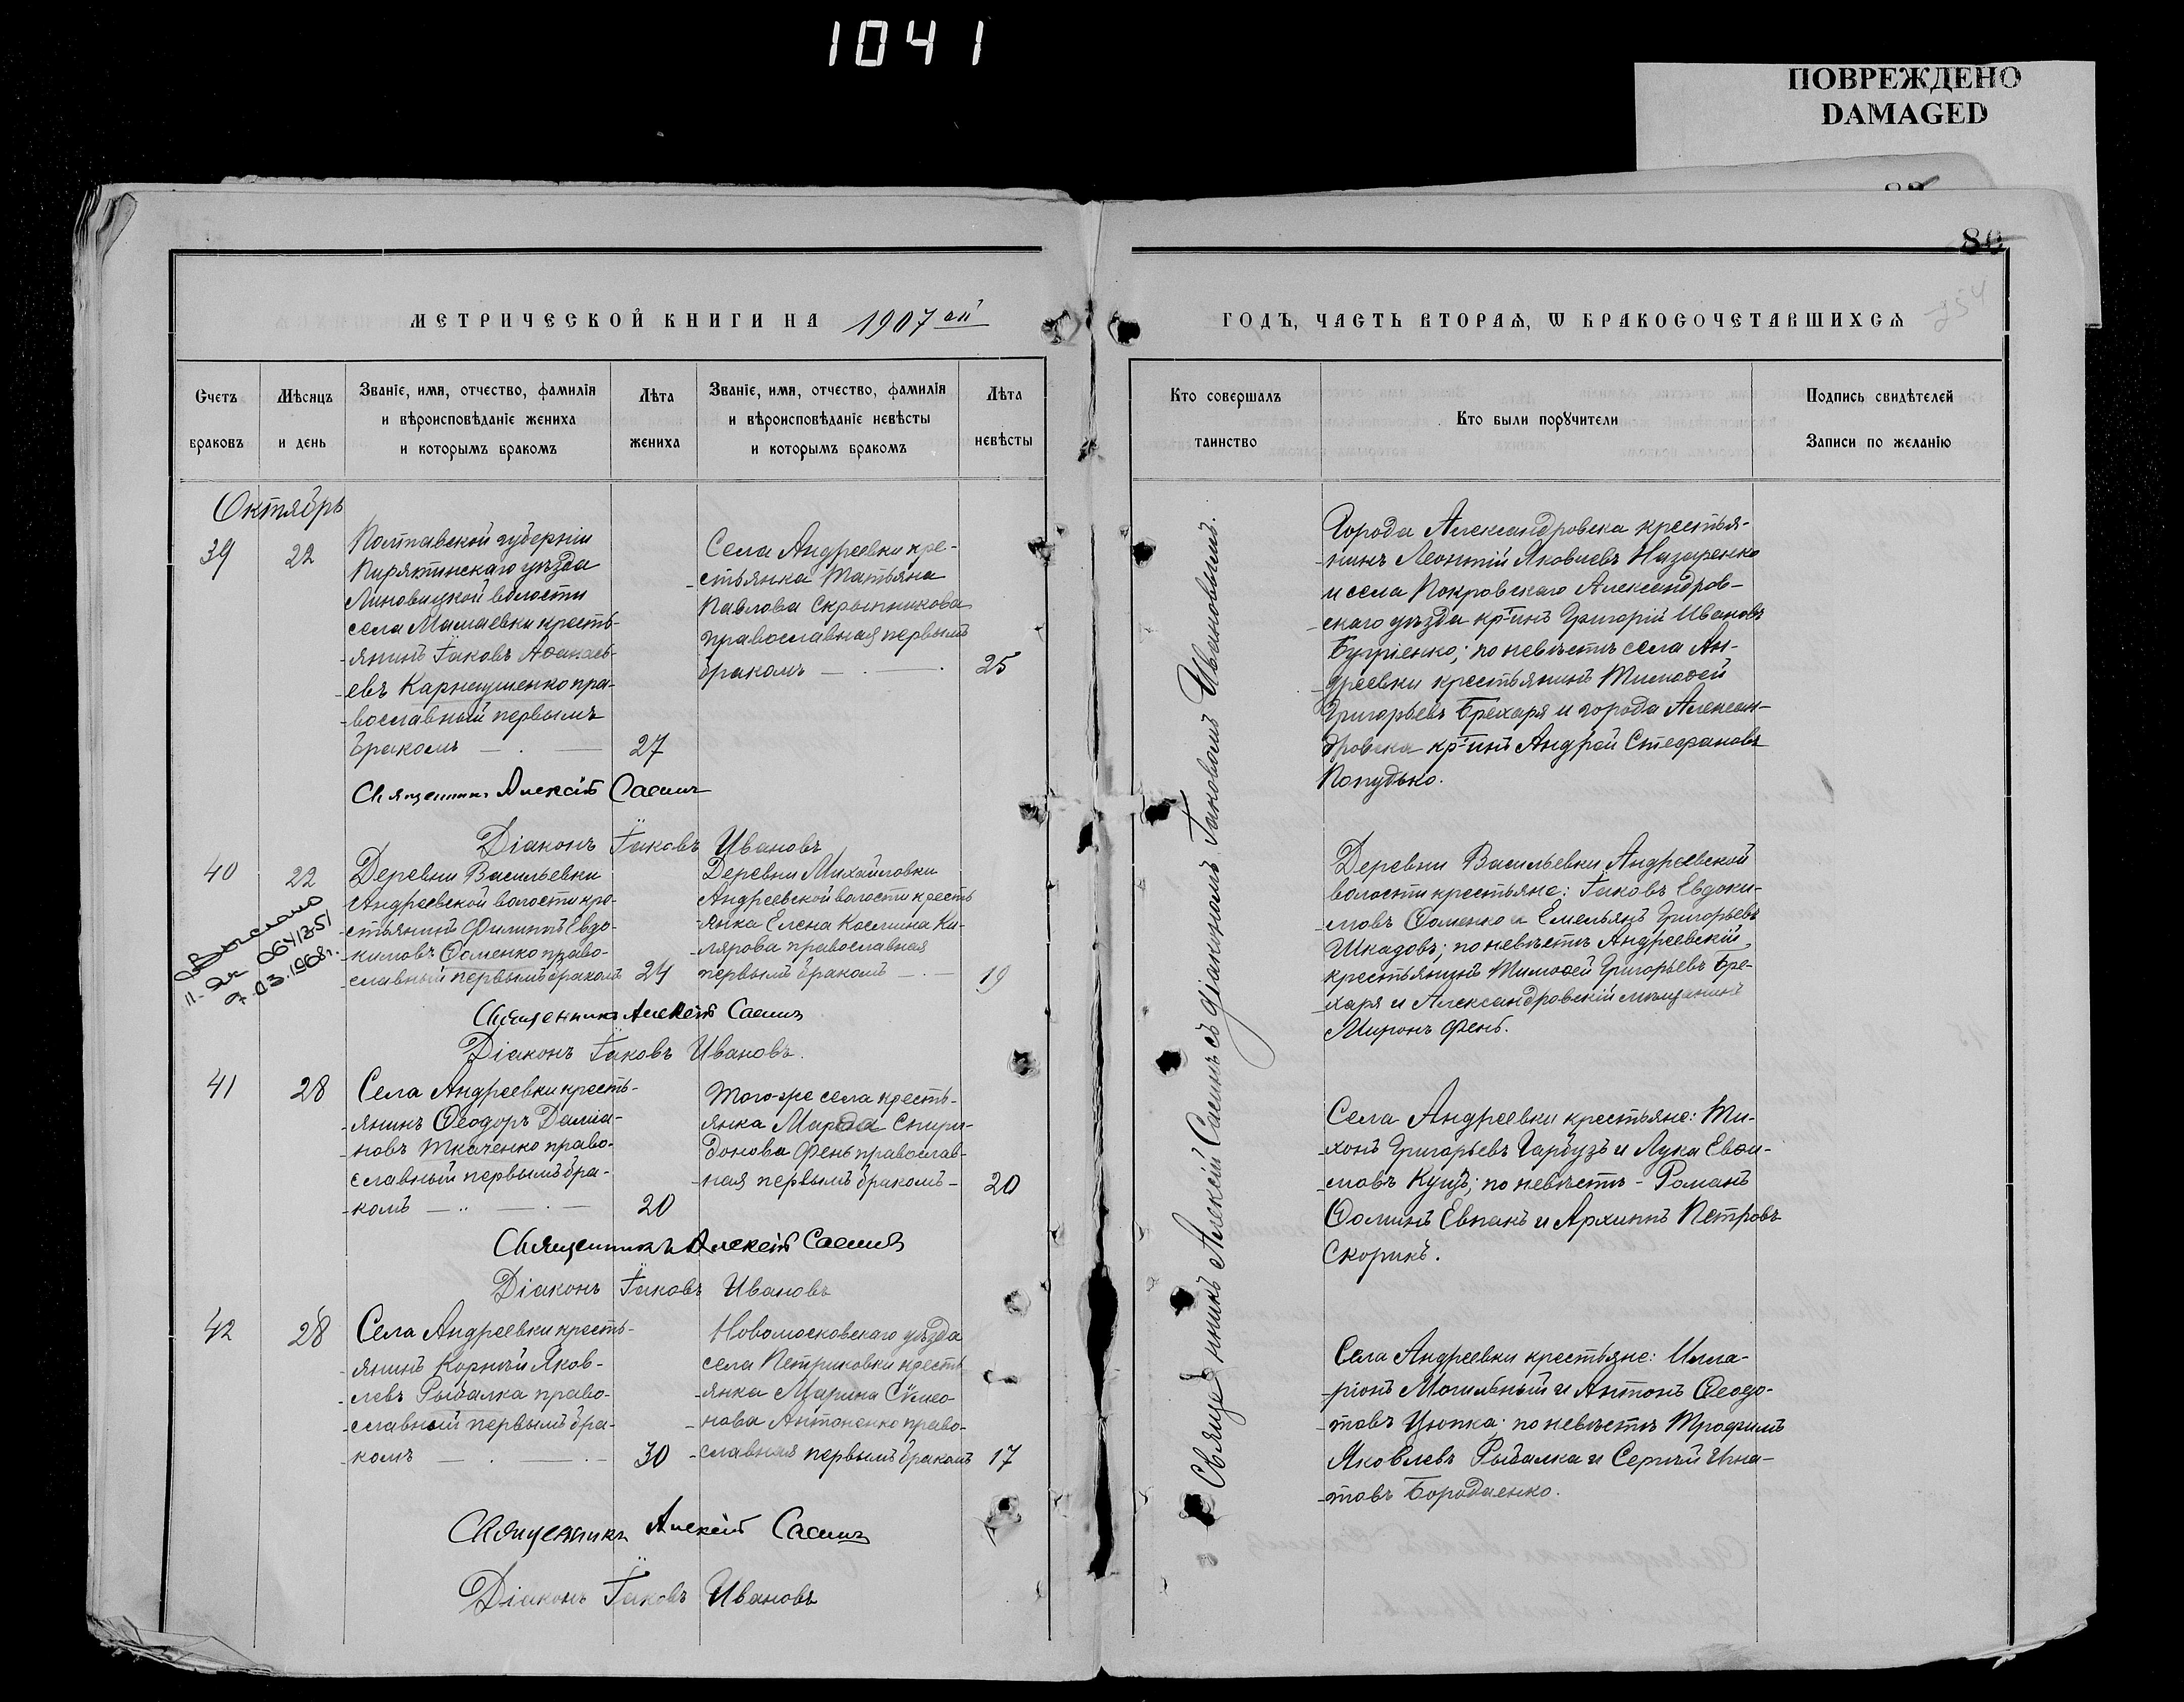 1041
ПОВРЕЖДЕНО
DAMAGED
80
254
МЕТРИЧЕСКОЙ КНИГИ НА 1907 ый
ГОДЪ, ЧАСТЬ ВТОРАЯ, Ѡ БРАКОСОЧЕТАВШИХСЯ
Счетъ
браковъ
Мѣсяцъ
и день
Званіе, имя, отчество, фамилія
и вѣроисповѣданіе жениха
и которымъ бракомъ
Лѣта
жениха
Званіе, имя, отчество, фамилія
и вѣроисповѣданіе невѣсты
и которымъ бракомъ
Лѣта
невѣсты
Кто совершалъ
таинство
Кто были порꙋчители
Подпись свидѣтелей
Записи по желанію
Октябрь
39
22
Полтавской губерніи
Пирятинскаго уѣзда
Линовицкой волости
села Мамаевки кресть-
-янинъ Іаковъ Аѳанась-
-евъ Карнаушенко пра-
-вославный первымъ
бракомъ — . —
27
Села Андреевки кре-
-стьянка Татьяна
Павлова Скрыпникова
православная первымъ
бракомъ — . — .
25
Священникъ Алексій Саенъ
Діаконъ Іаковъ Ивановъ
Города Александровска крестья-
-нинъ Леонтій Яковлевъ Назаренко
и села Покровскаго Александров-
-скаго уѣзда кр-инъ Григорій Ивановъ
Бугріенко; по невѣстѣ села Ан-
-дреевки крестьянинъ Тимоѳей
Григорьевъ Брехаря и города Алексан-
-дровска кр-инъ Андрей Стефановъ
Попудько.
40
22
Деревни Васильевки
Андреевской волости кре-
-стьянинъ Филиппъ Евдо-
-кимовъ Ѳоменко право-
-славный первымъ бракомъ
24
Деревни Михайловки
Андреевской волости кресть
-янка Елена Космина Ки-
-лярова православная
первымъ бракомъ — . —
19
Священникъ Алексій Саенъ
Діаконъ Іаковъ Ивановъ.
Выслано
II-ЯК 0641351
7.03.1968г.
Деревни Васильевки Андреевской
волости крестьяне: Іаковъ Евдоки-
-мовъ Ѳоменко и Емельянъ Григорьевъ
Шкадовъ; по невѣстѣ Андреевскій
крестьянинъ Тимоѳей Григорьевъ Бре-
-харя и Александровскій мѣщанинъ
Миронъ Фень.
41
28
Села Андреевки кресть-
-янинъ Ѳеодоръ Даміа-
-новъ Ткаченко право-
-славный первымъ бра-
-комъ — .. — . —
20
Того-же села кресть-
янка Спири-
-донова Фень православ-
-ная первымъ бракомъ -
20
Священникъ Алексій Саенъ
Діаконъ Іаковъ Ивановъ
Села Андреевки крестьяне: Ти-
-хонъ Григорьевъ Гарбузъ и Лука Евѳи-
-мовъ Куцъ; по невѣстѣ - Романъ
Ѳоминъ Евпакъ и Архиппъ Петровъ
Скорикъ.
42
28
Села Андреевки кресть-
-янинъ Корнилій Яков-
-левъ Рыбалка право-
-славный первымъ бра-
-комъ — . — . —
30
Новомосковскаго уѣзда
села Петриковки кресть
-янка Марина Сѵмео-
-нова Антоненко право-
-славная первымъ бракомъ
17
Священникъ Алексій Саенъ
Діаконъ Іаковъ Ивановъ
Села Андреевки крестьяне: Илла-
-ріонъ Могильный и Антонъ Ѳеодо-
-товъ Цюпка; по невѣстѣ Трофимъ
Яковлевъ Рыбалка и Сергѣй Игна-
-товъ Бородаенко.
Священникъ Алексій Саенъ съ діакономъ Іаковомъ Ивановымъ.